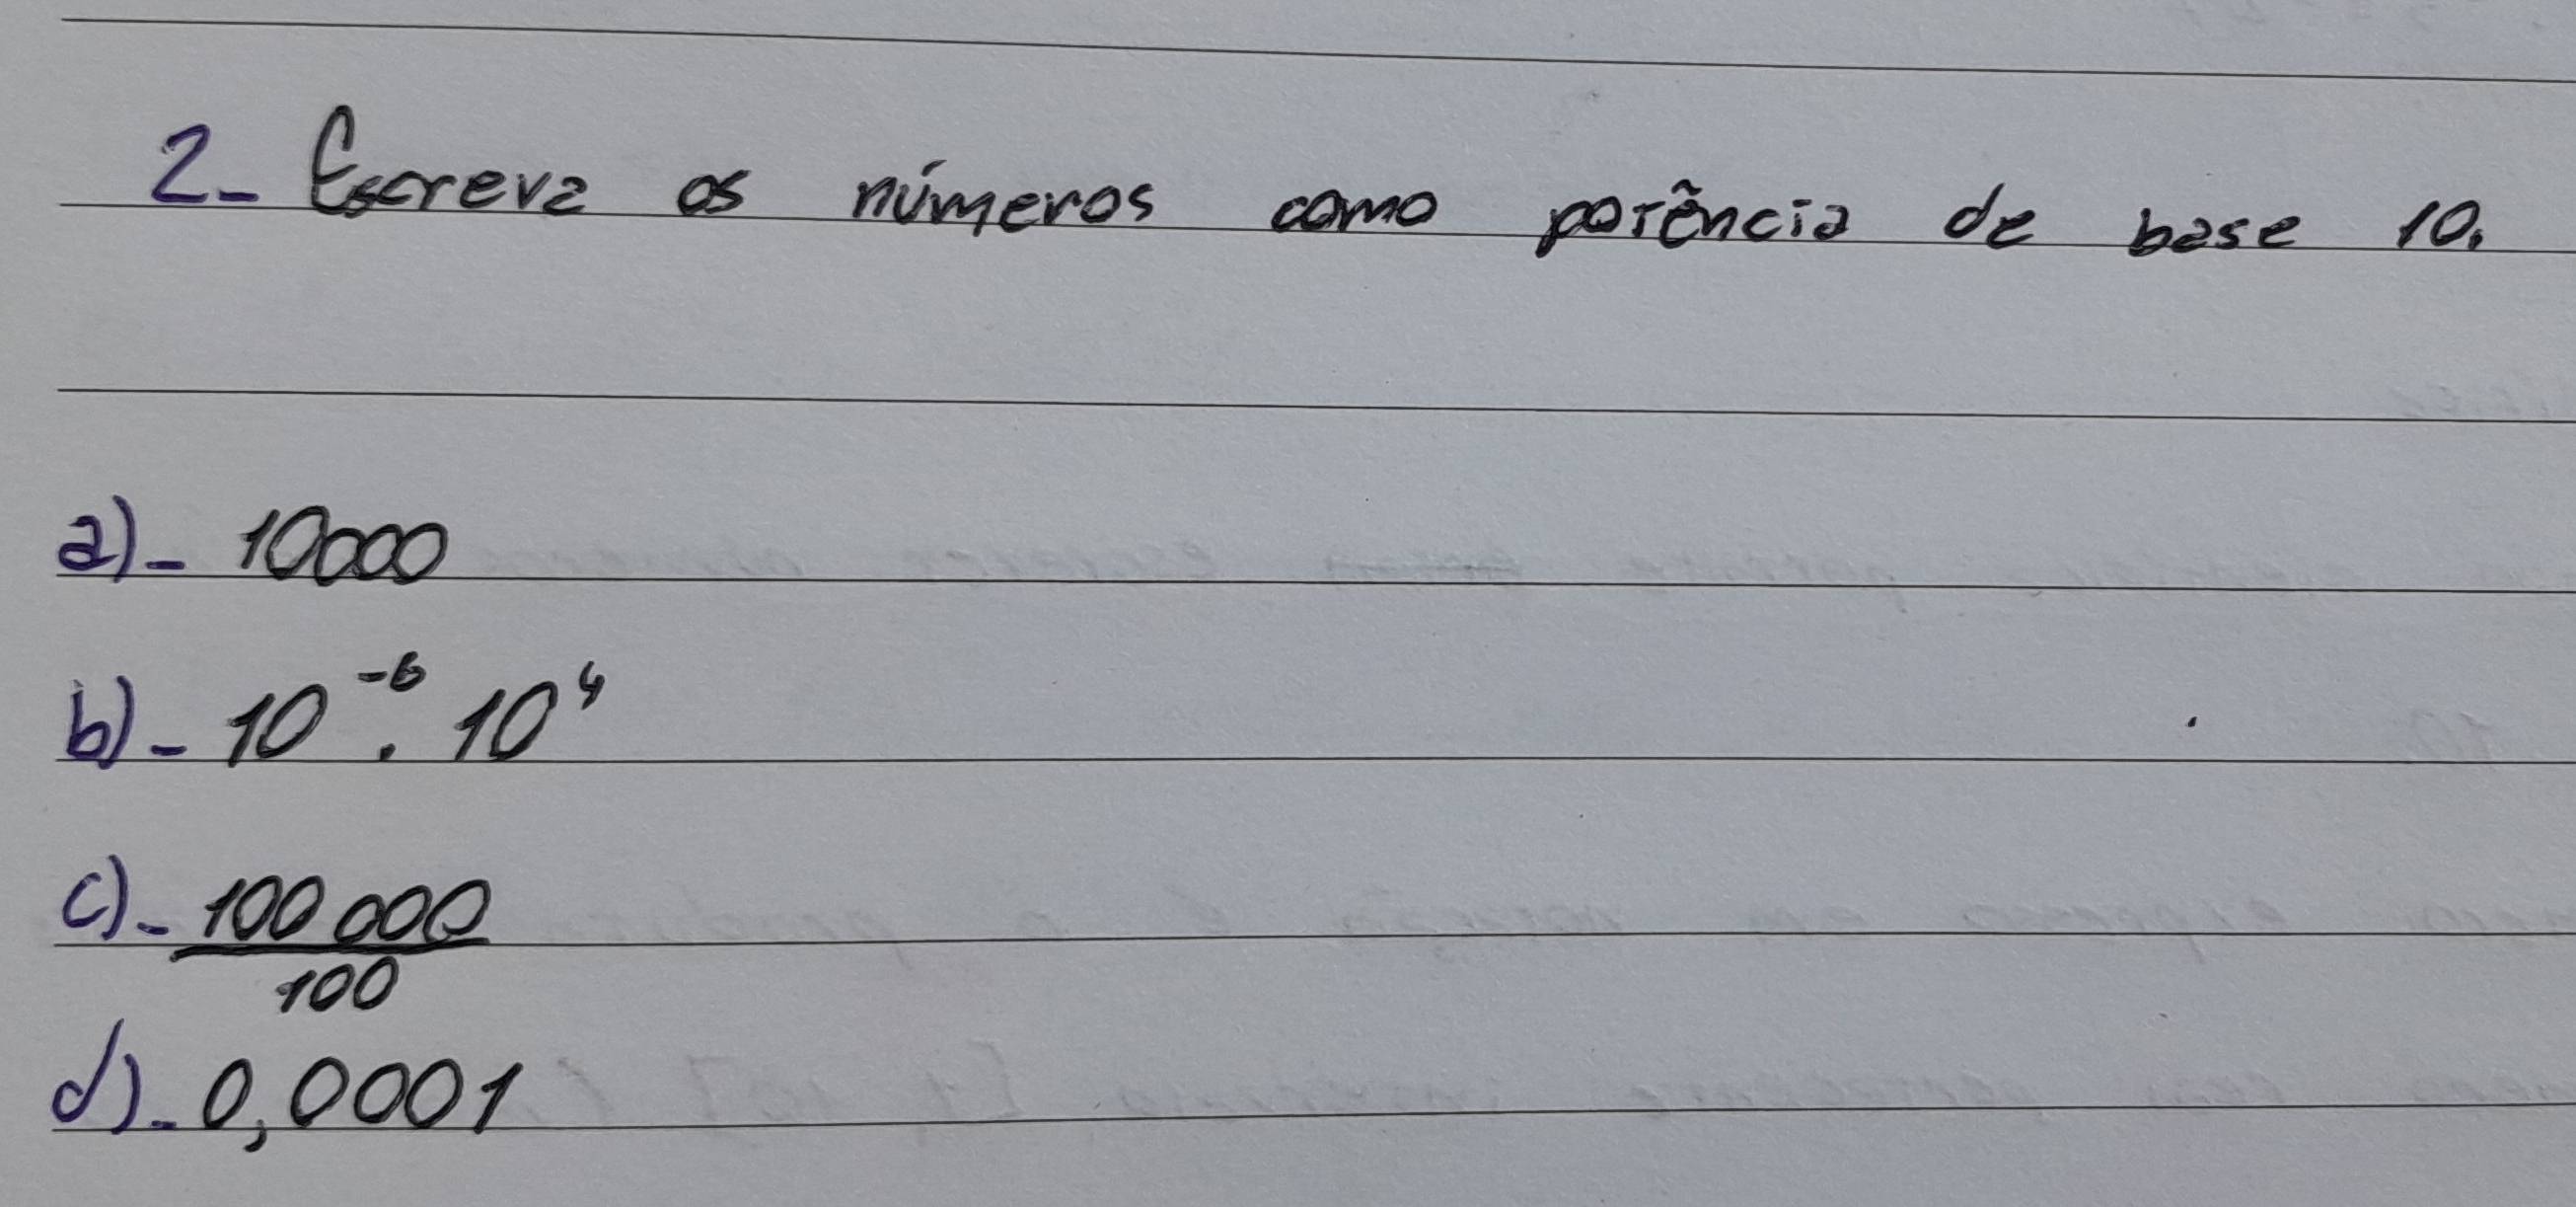 2- Escreva os números como potência de base 10.
a)- 10000
b)- 10⁻⁶ . 10⁴
c)- 100 000
100
d)- 0,0001